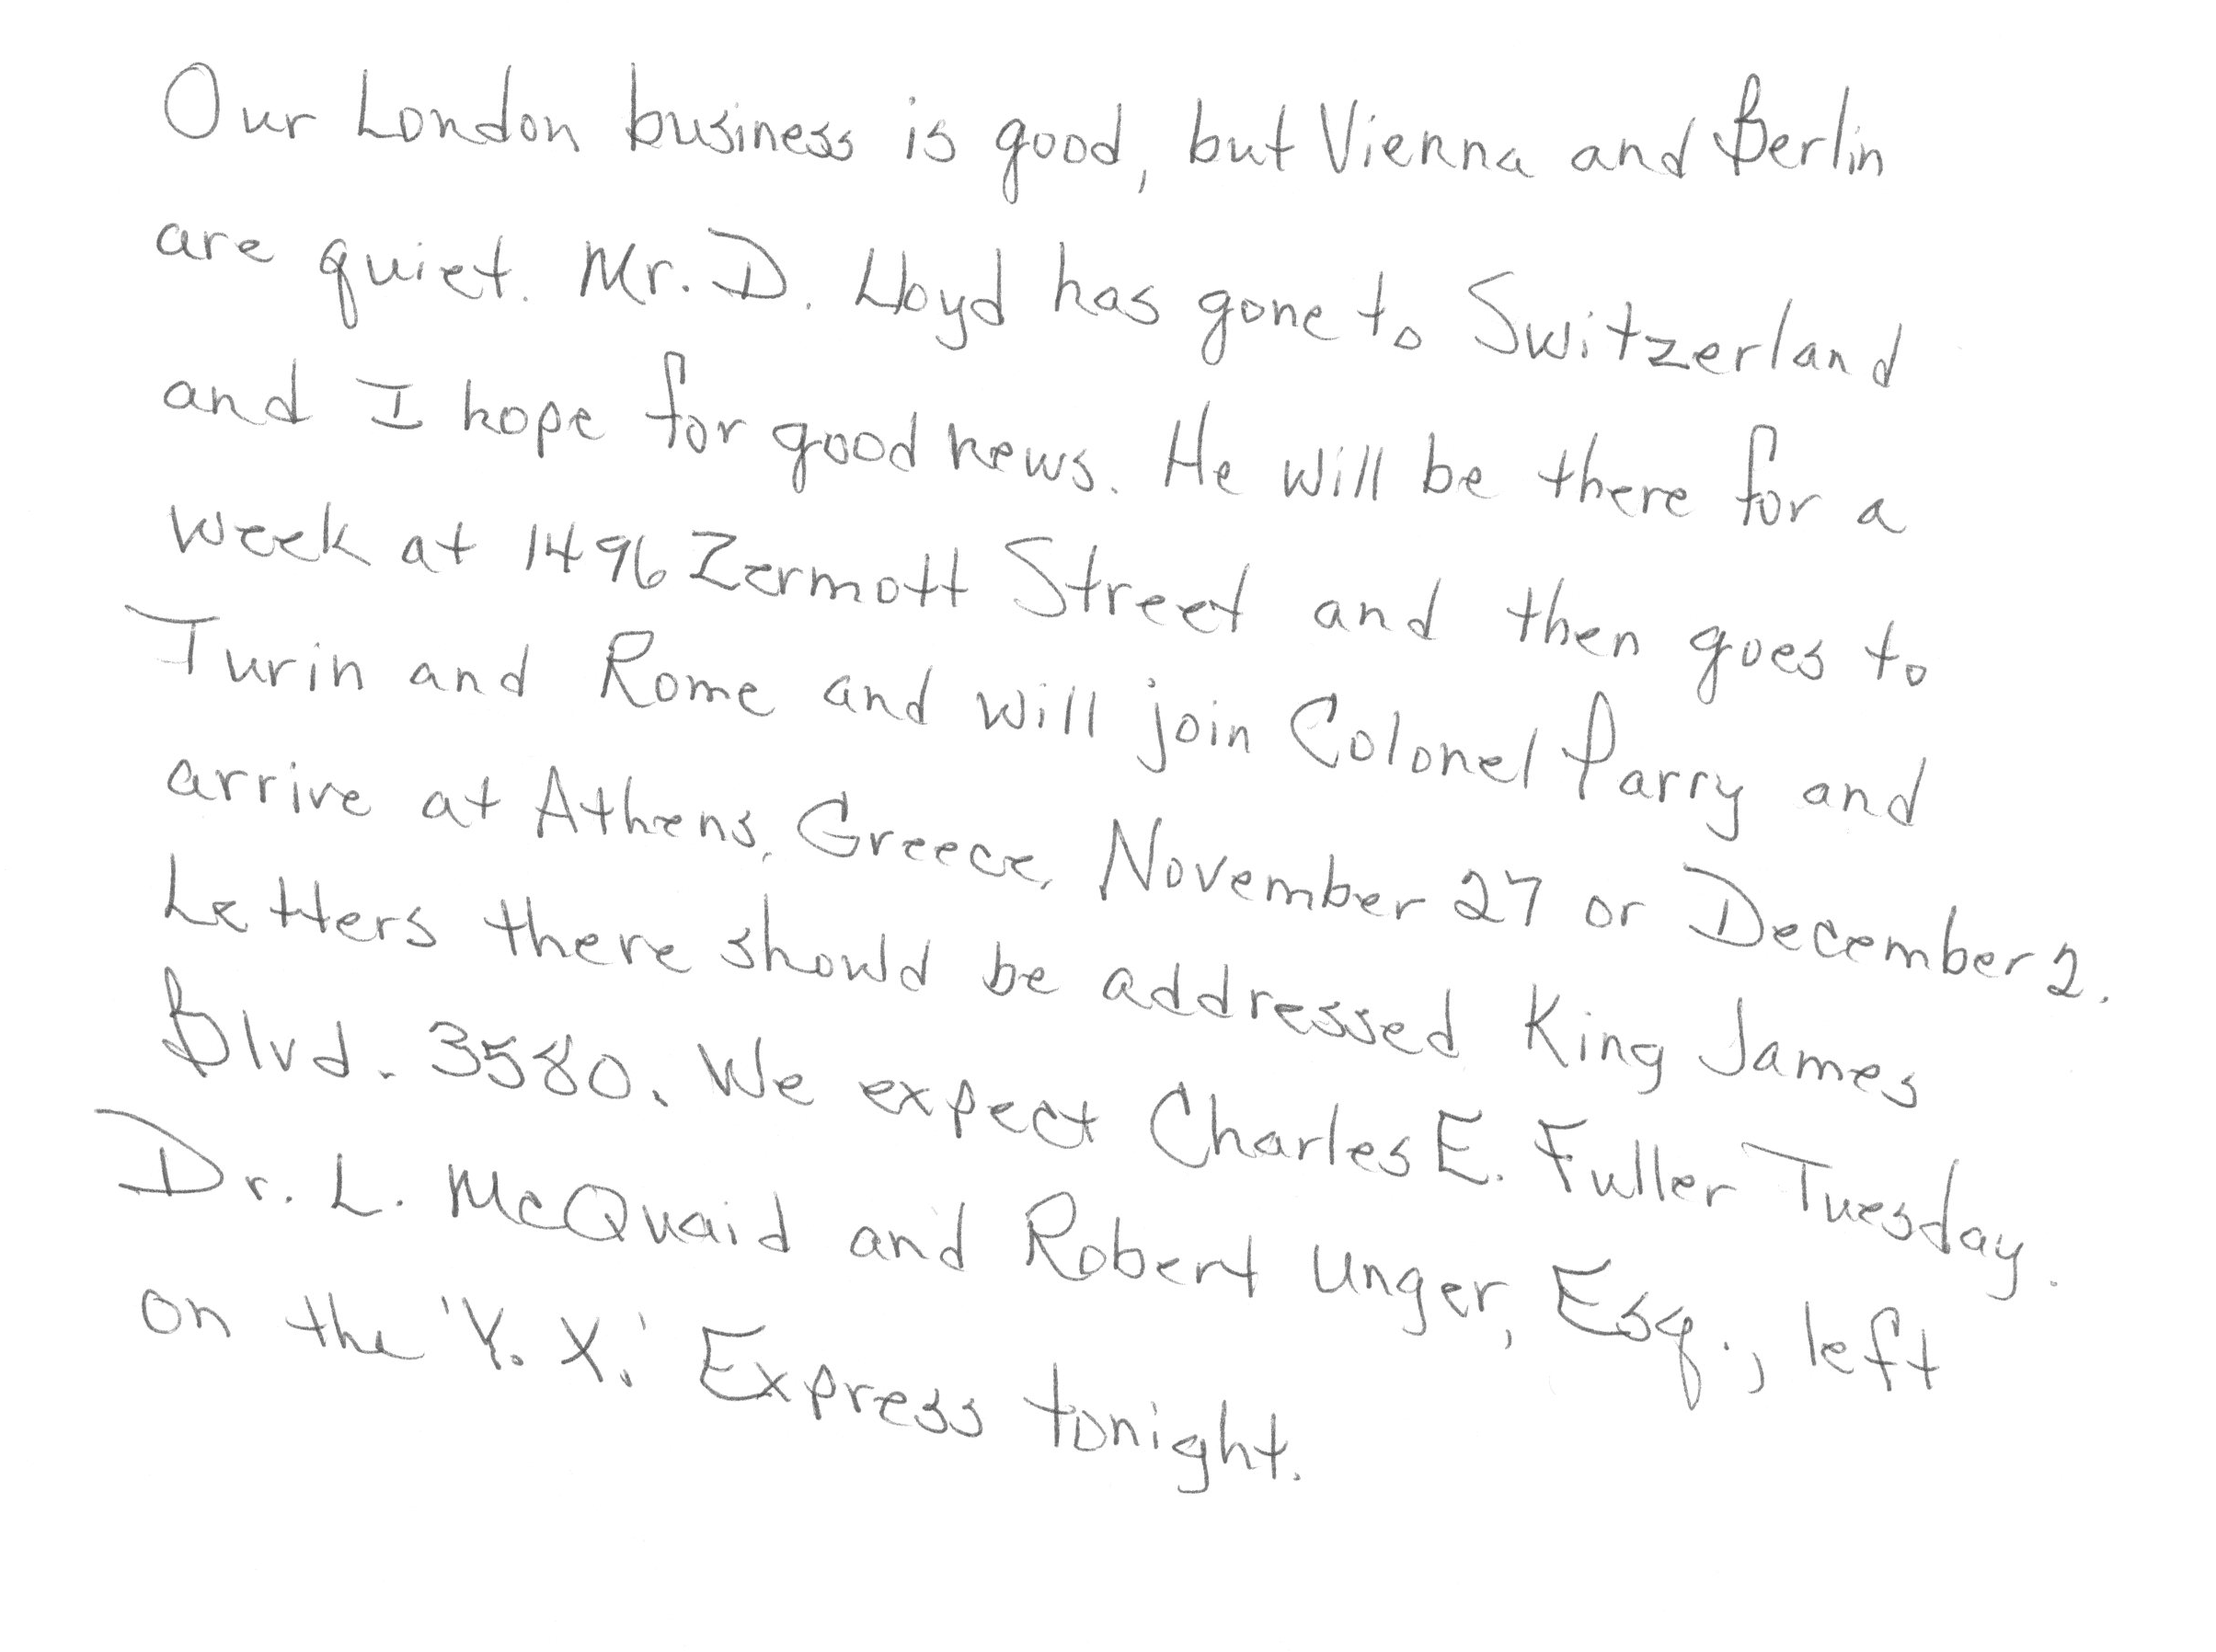 Our London business is good, but Vienna and Berlin
are quiet. Mr. D. Lloyd has gone to Switzerland
and I hope for good news. He will be there for a
week at 1496 Zermott Street and then goes to
Turin and Rome and will join Colonel Parry and
arrive at Athens, Greece, November 27 or December 2.
Letters there should be addressed King James
Blvd. 3580. We expect Charles E. Fuller Tuesday.
Dr. L. McQuaid and Robert Unger, Esq., left
on the 'Y. X.' Express tonight.